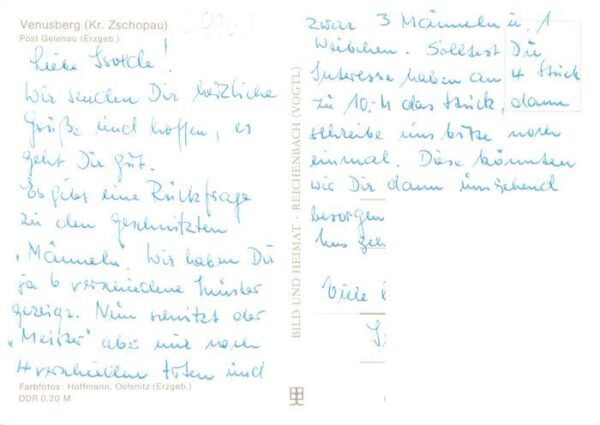 Venusberg (Kr. Zschopau)
Post Gelenau (Erzgeb.)
Liebe Isolde!
Wir senden Dir herzliche
Grüße und hoffen, es
geht Dir gut.
Es gibt eine Rückfrage
zu den geschnitzten
"Männeln". Wir haben Dir
ja 6 verschiedene Muster
gezeigt. Nun schnitzt der
"Meister" aber nur noch
4 verschiedene Arten und
Farbfotos: Hoffmann, Oelsnitz (Erzgeb.)
DDR 0,20 M
BILD UND HEIMAT · REICHENBACH (VOGTL)
zwar 3 Männeln u. 1
Weibchen. Solltest Du
Interesse haben an 4 Stück
zu 10,-M das Stück, dann
schreibe uns bitte noch
einmal. Diese könnten
wir Dir dann umgehend
besorgen
Uns
Viele